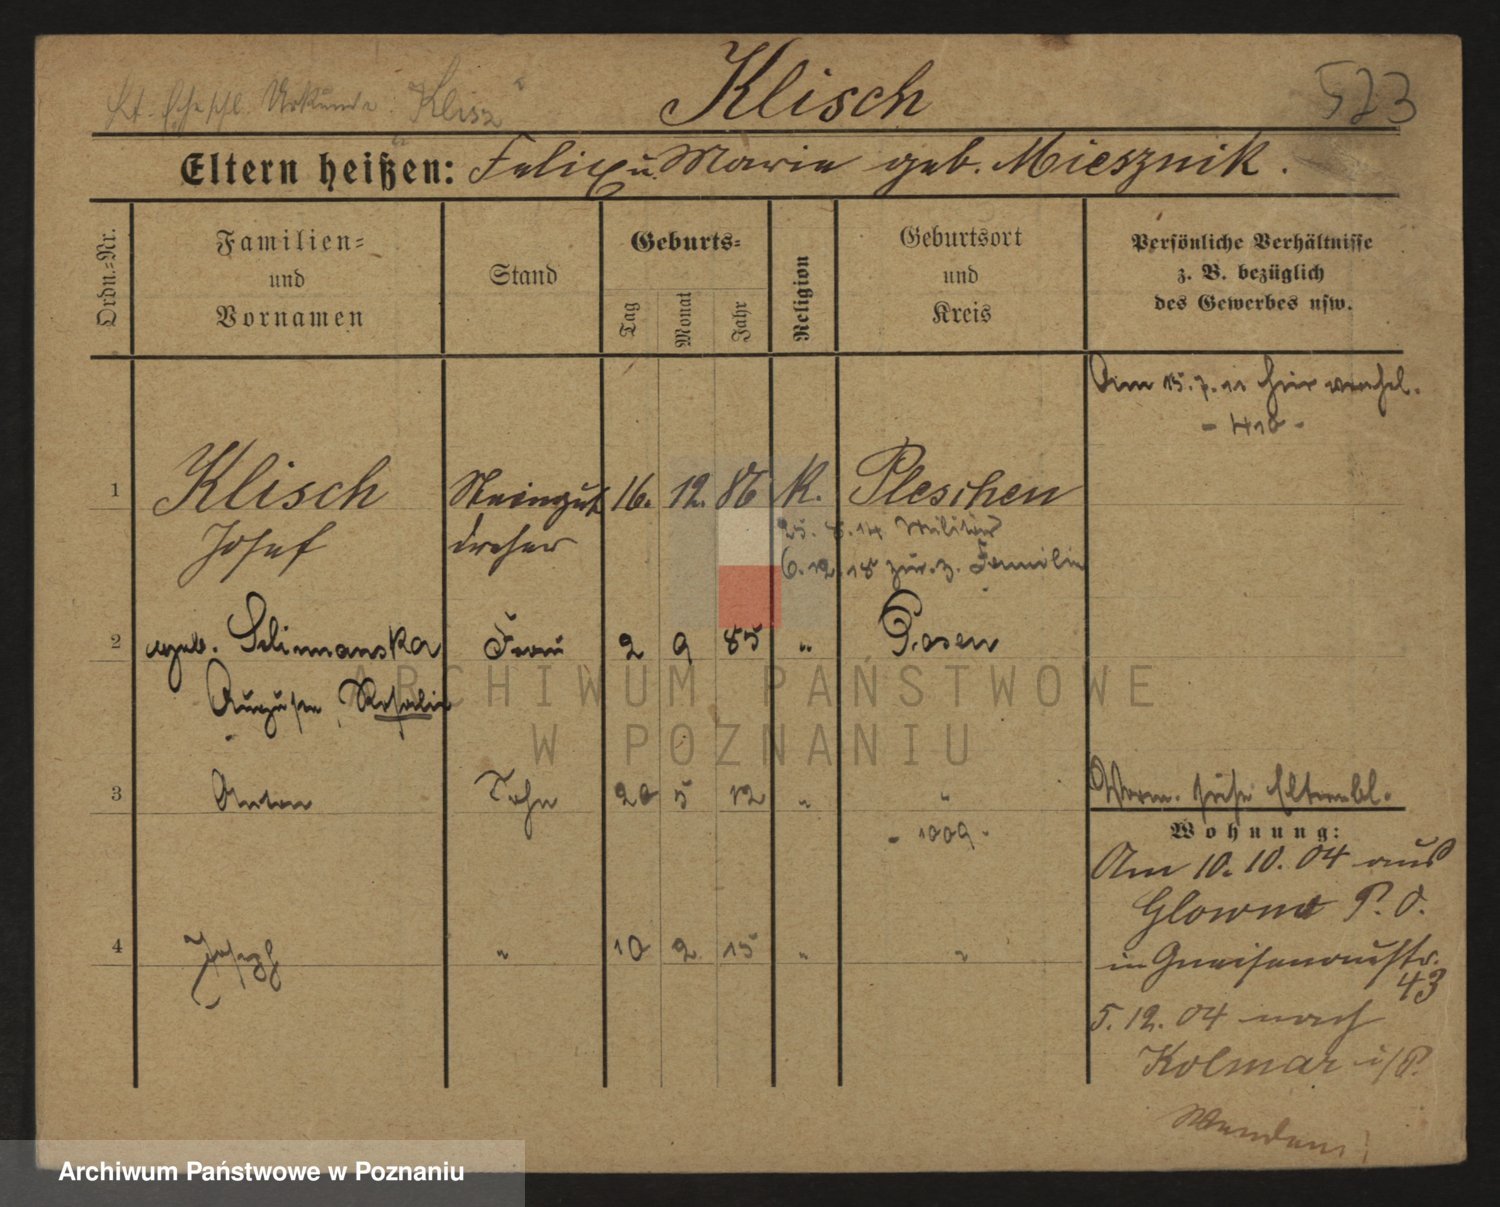 Klisch
Lt. Urkunde "Klisz"
523
Eltern heißen: Felix u. Marie geb. Miesznik.
Ordn.-Nr.
Familien-
und
Vornamen
Stand
Geburts-
Tag
Monat
Jahr
Religion
Geburtsort
und
Kreis
Persönliche Verhältnisse
z. B. bezüglich
des Gewerbes usw.
Am 15.7.11 hier
- 418 -
1 Klisch Steingut 16. 12. 86 K. Pleschen
Josef dreher
25. 8. 14 Militär
6. 12. 18 zur. z. Familie
2 geb. Selimanska Frau 2 9 85 " Posen
Rosalie
3 Anton Sohn 20 5 12 " "
- 1009 -
Wohnung:
Am 10. 10. 04 aus
Glowno P. O.
in Gneisenaustr.
43
4 Joseph " 10 2 15 " "
5. 12. 04 nach
Kolmar i/P.
Wenden!
ARCHIWUM PAŃSTWOWE
W POZNANIU
Archiwum Państwowe w Poznaniu